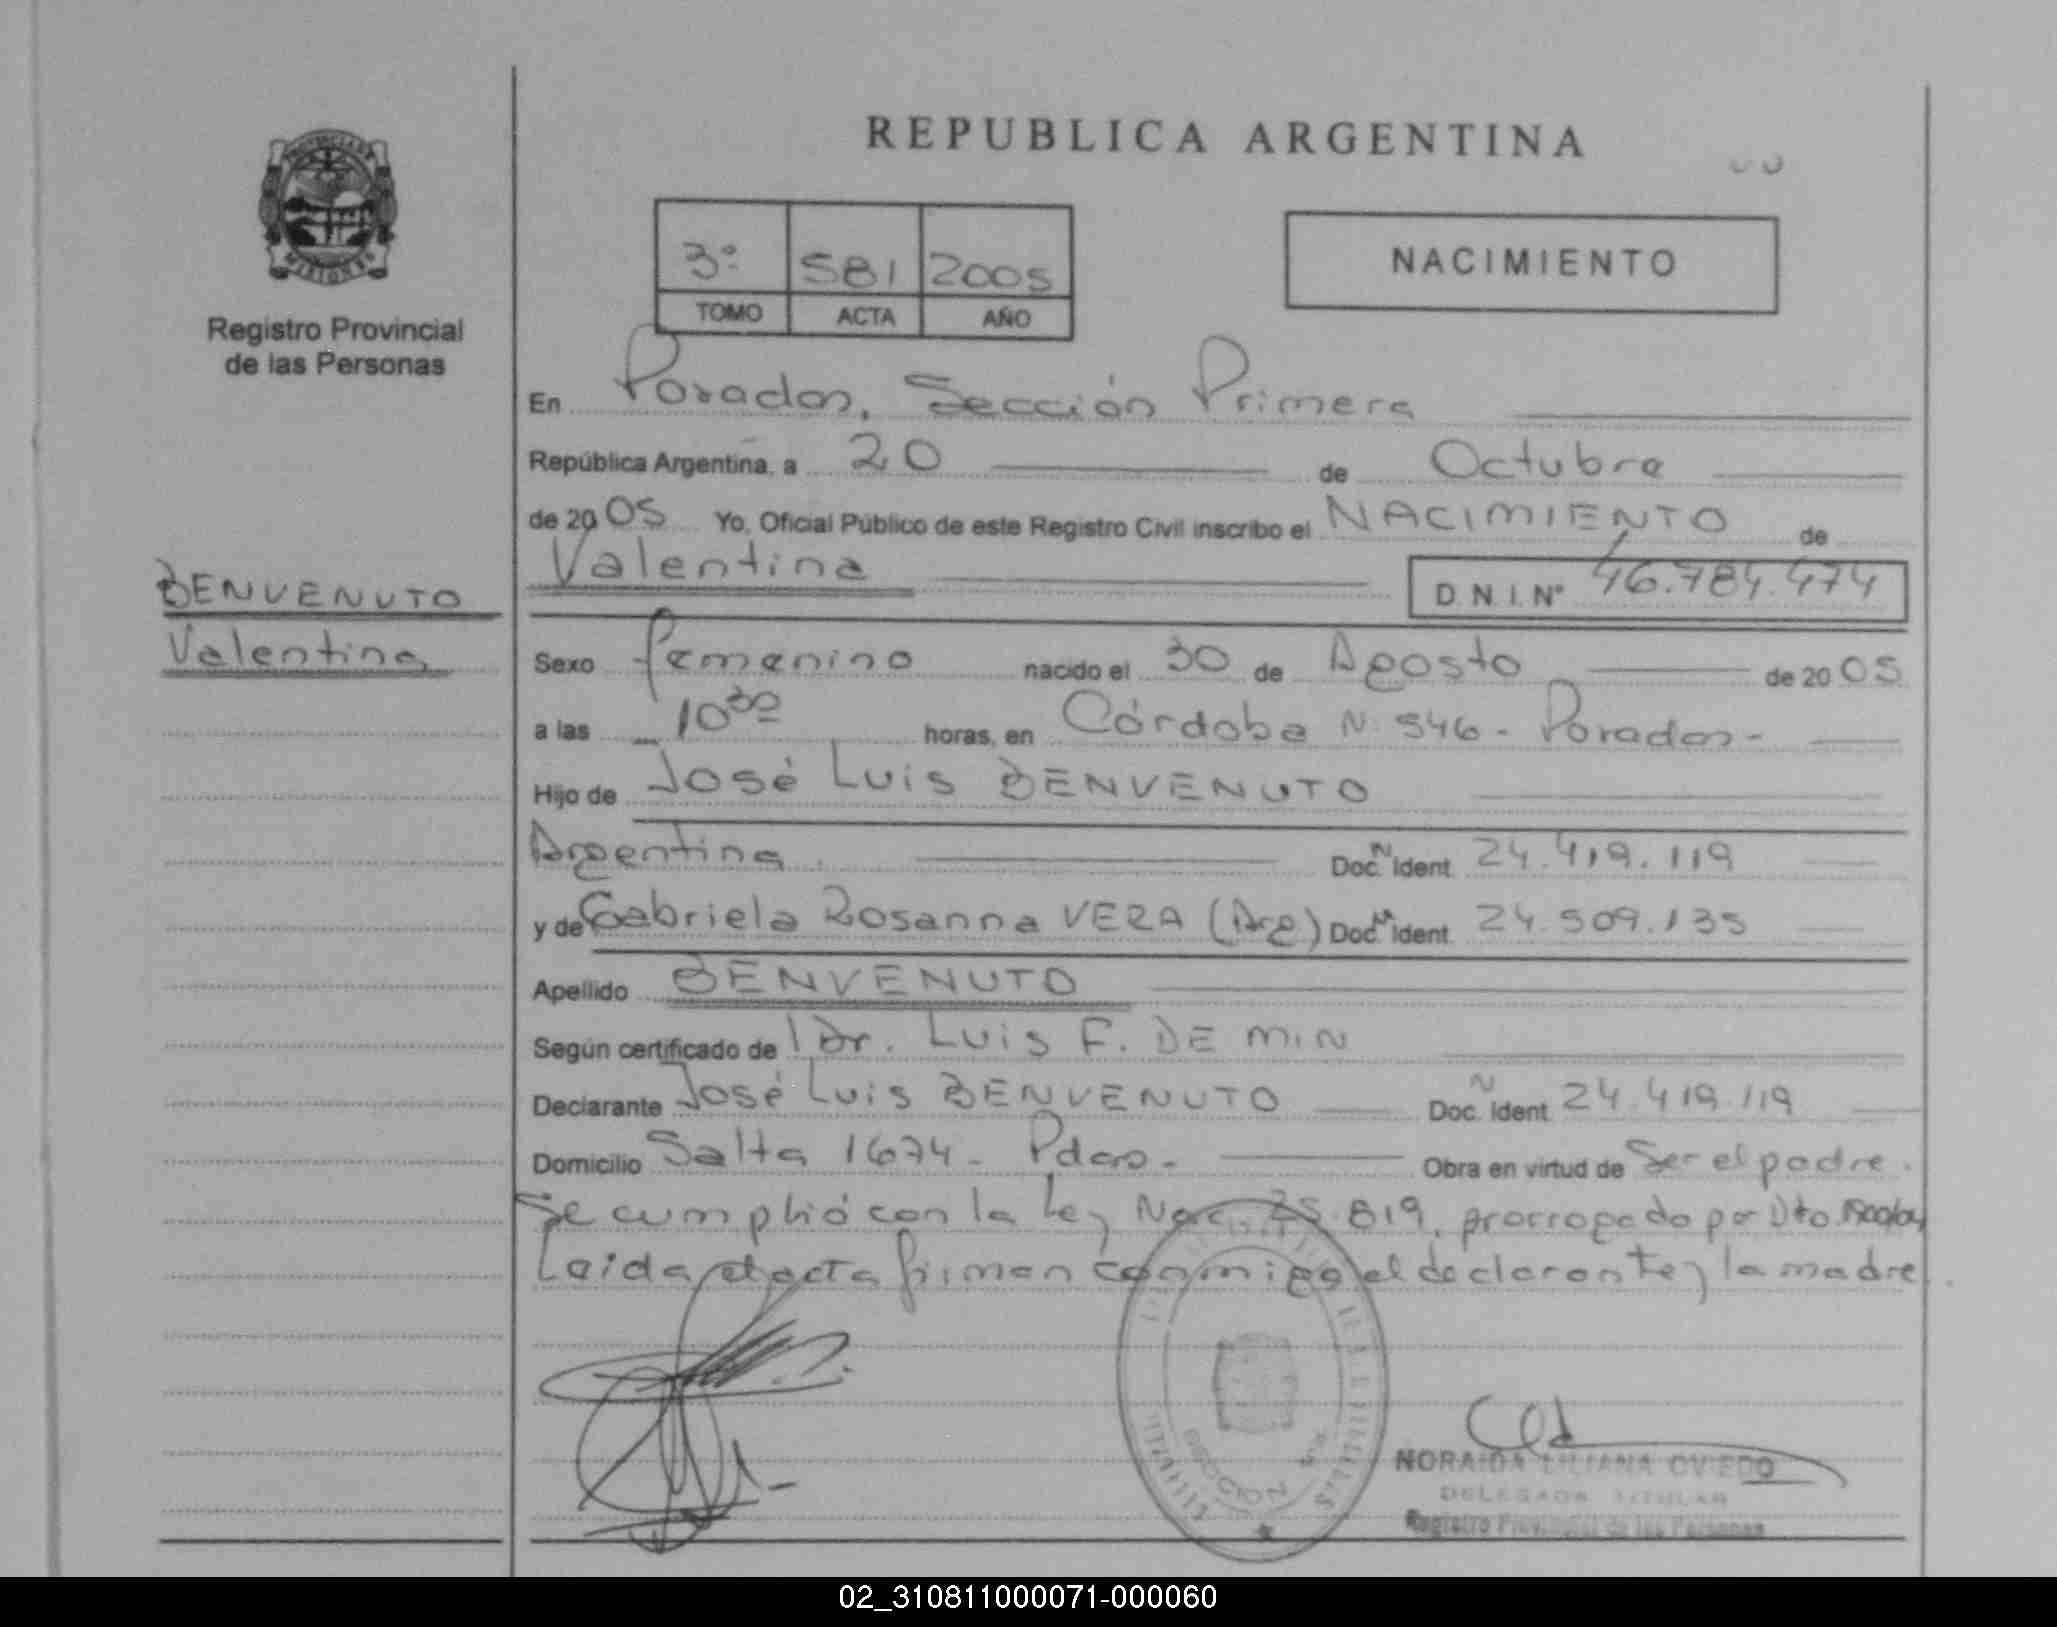 REPUBLICA ARGENTINA
PROVINCIA DE
MISIONES
Registro Provincial
de las Personas
3º 581 2005
TOMO ACTA AÑO
NACIMIENTO
En Posadas, Sección Primera
República Argentina, a 20 de Octubre
de 2005 Yo, Oficial Público de este Registro Civil inscribo el NACIMIENTO de
Valentina D.N.I.Nº 46.784.474
BENVENUTO
Valentina
Sexo femenino nacido el 30 de Agosto de 2005
a las 10 30 horas, en Córdoba N. 546 - Posadas -
Hijo de José Luis BENVENUTO
Argentina Doc. N Ident. 24.419.119
y de Gabriela Rosanna VERA (Arg) Doc. N Ident. 24.509.135
Apellido BENVENUTO
Según certificado de l Dr. Luis F. DE MIN
Declarante José Luis BENVENUTO Doc. N Ident. 24.419.119
Domicilio Salta 1674 - Pdas - Obra en virtud de Ser el padre.
Se cumplió con la Ley Nac. 25.819, prorrogado por Dto.
Leida el acta firman conmigo el declarante y la madre.
SECCION 1ra
NORAIDA LILIANA OVIEDO
DELEGADA TITULAR
Registro Provincial de las Personas
02_310811000071-000060